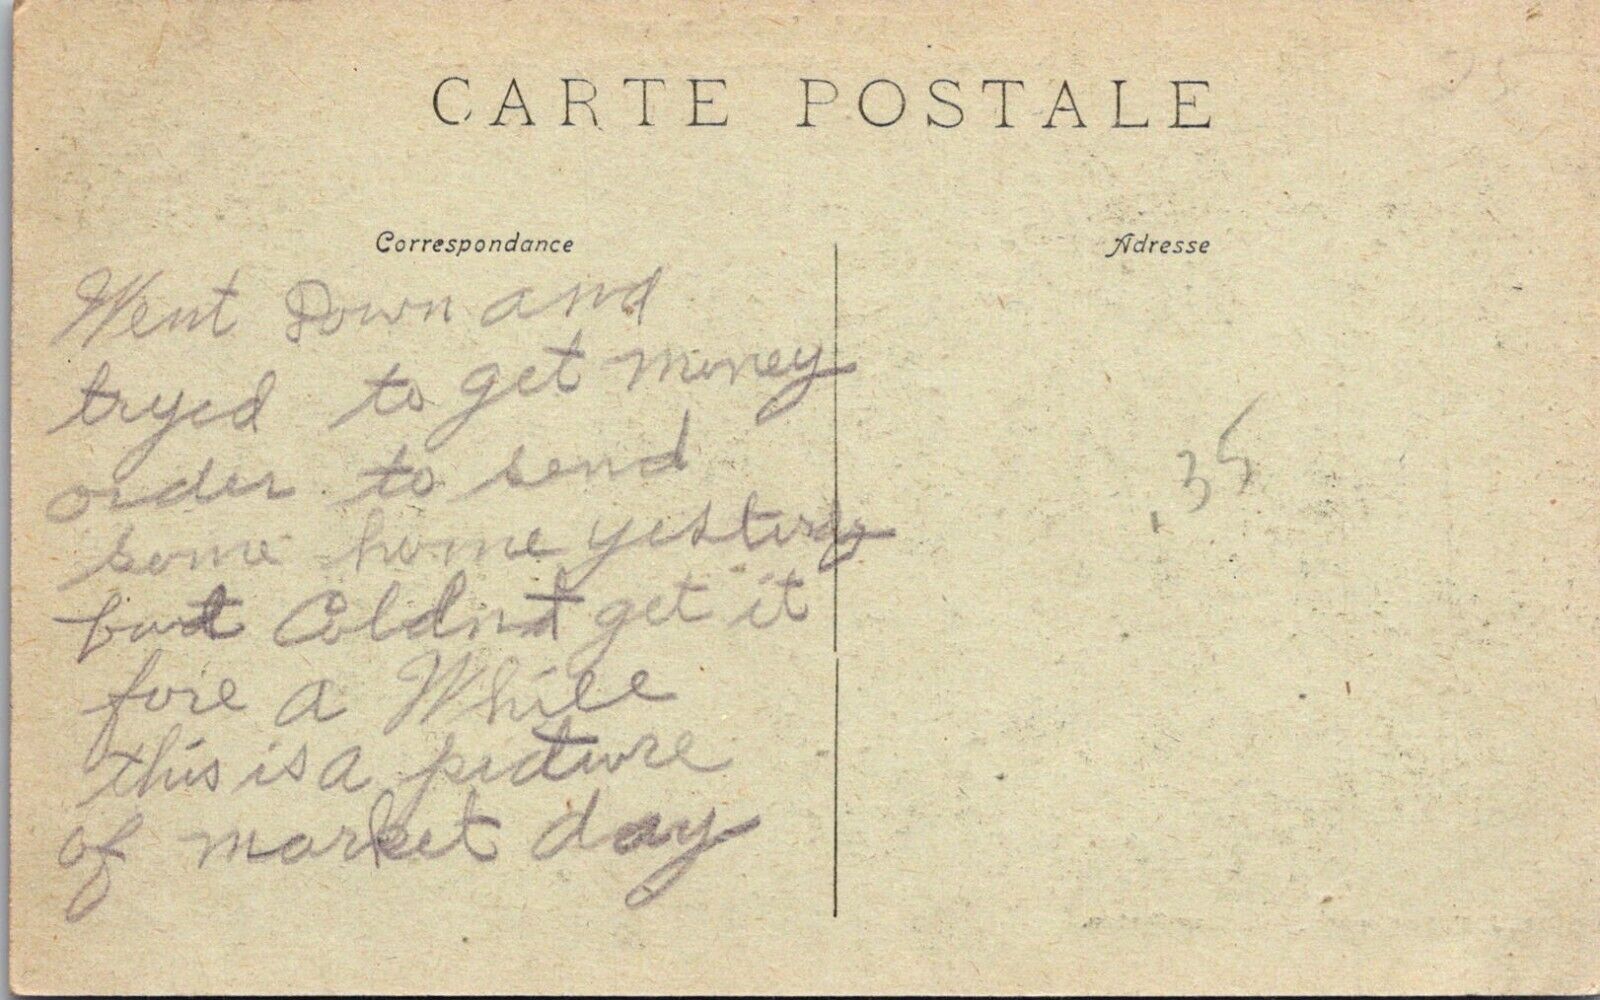 CARTE POSTALE
Correspondance
Went Down and
tryed to get money
order to send
some home yesterdy
but Coldnt get it
fore a While
this is a picture
of market day
Adresse
.35